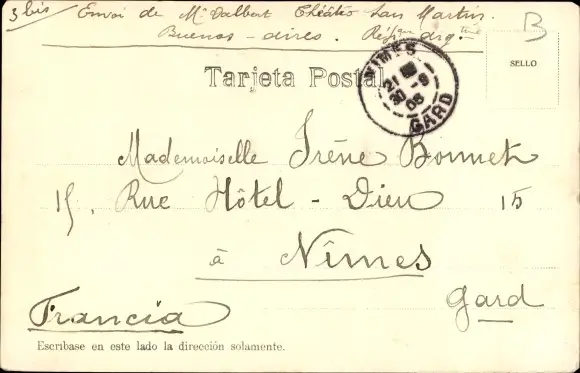 3 bis / Envoi de Mr Dalbert Théâtro San Martin.
Buenos-aires. Rép. Argtine
B
Tarjeta Postal
SELLO
NIMES
21
30 -9
05
GARD
Mademoiselle Irène Bonnet
15. Rue Hôtel-Dieu 15
à Nîmes
Gard
Francia
Escríbase en este lado la dirección solamente.